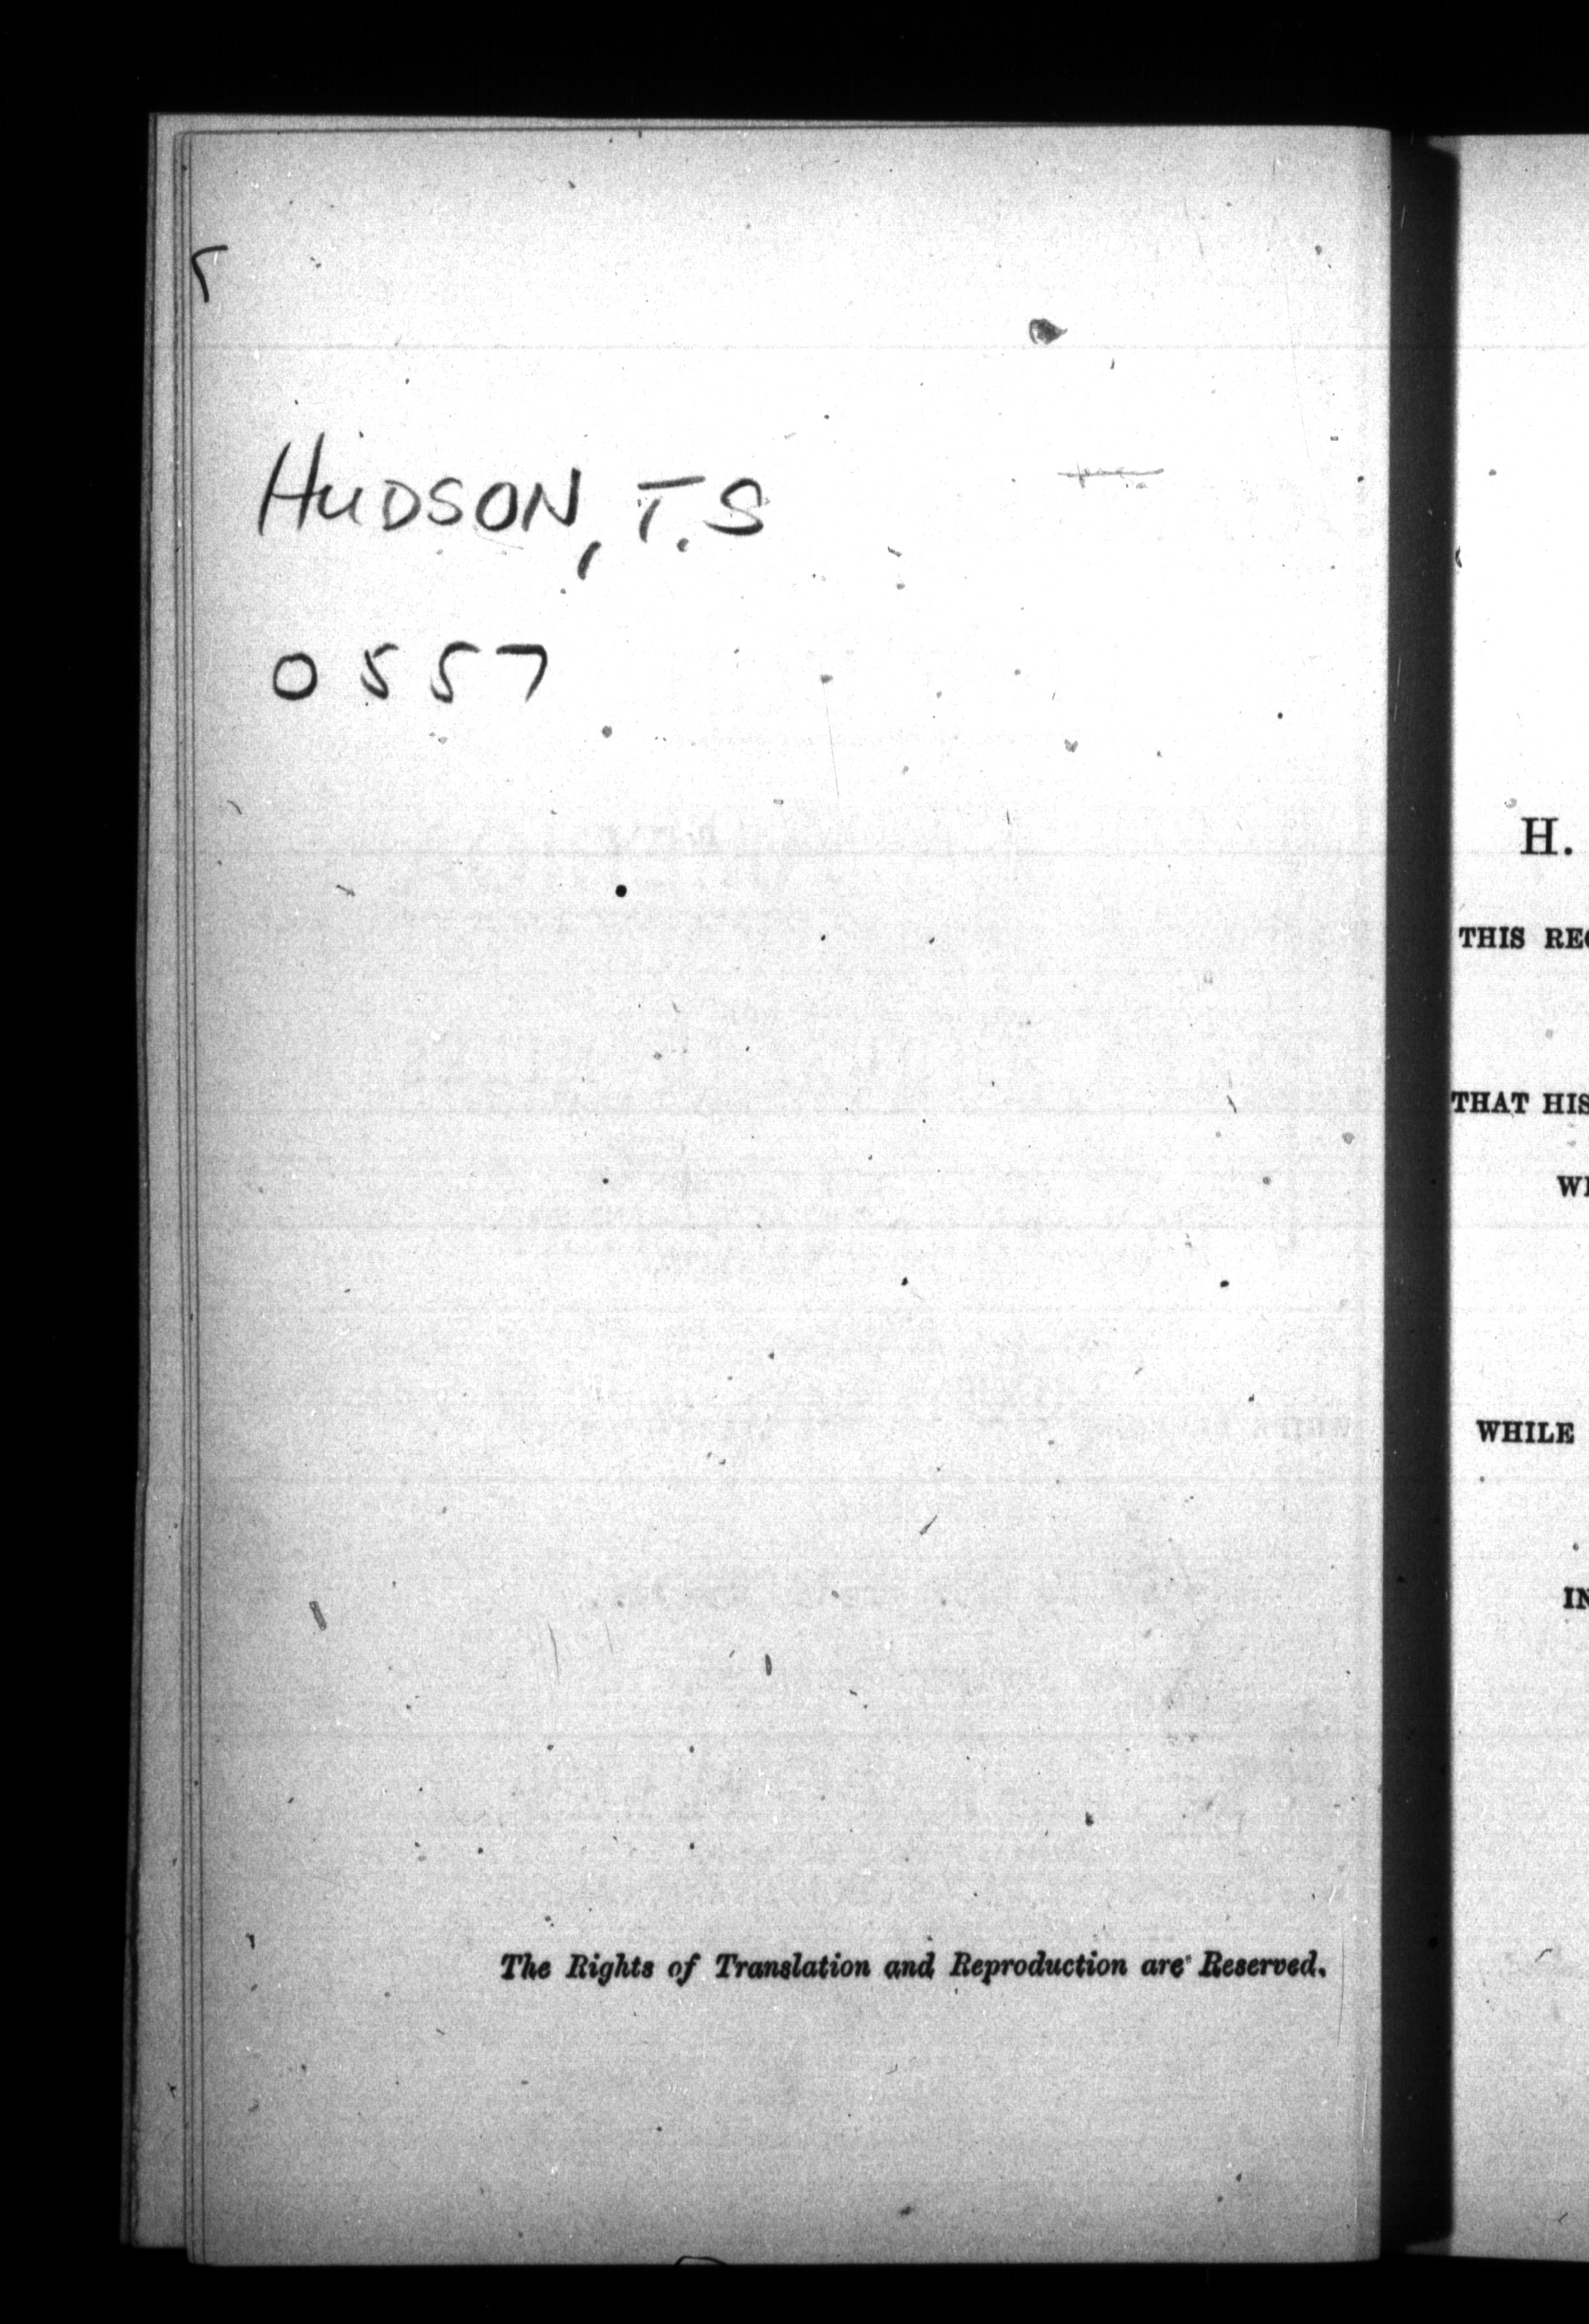 HUDSON, T.S
0557
The Rights of Translation and Reproduction are Reserved.
H.
THIS
THAT HIS
WHILE